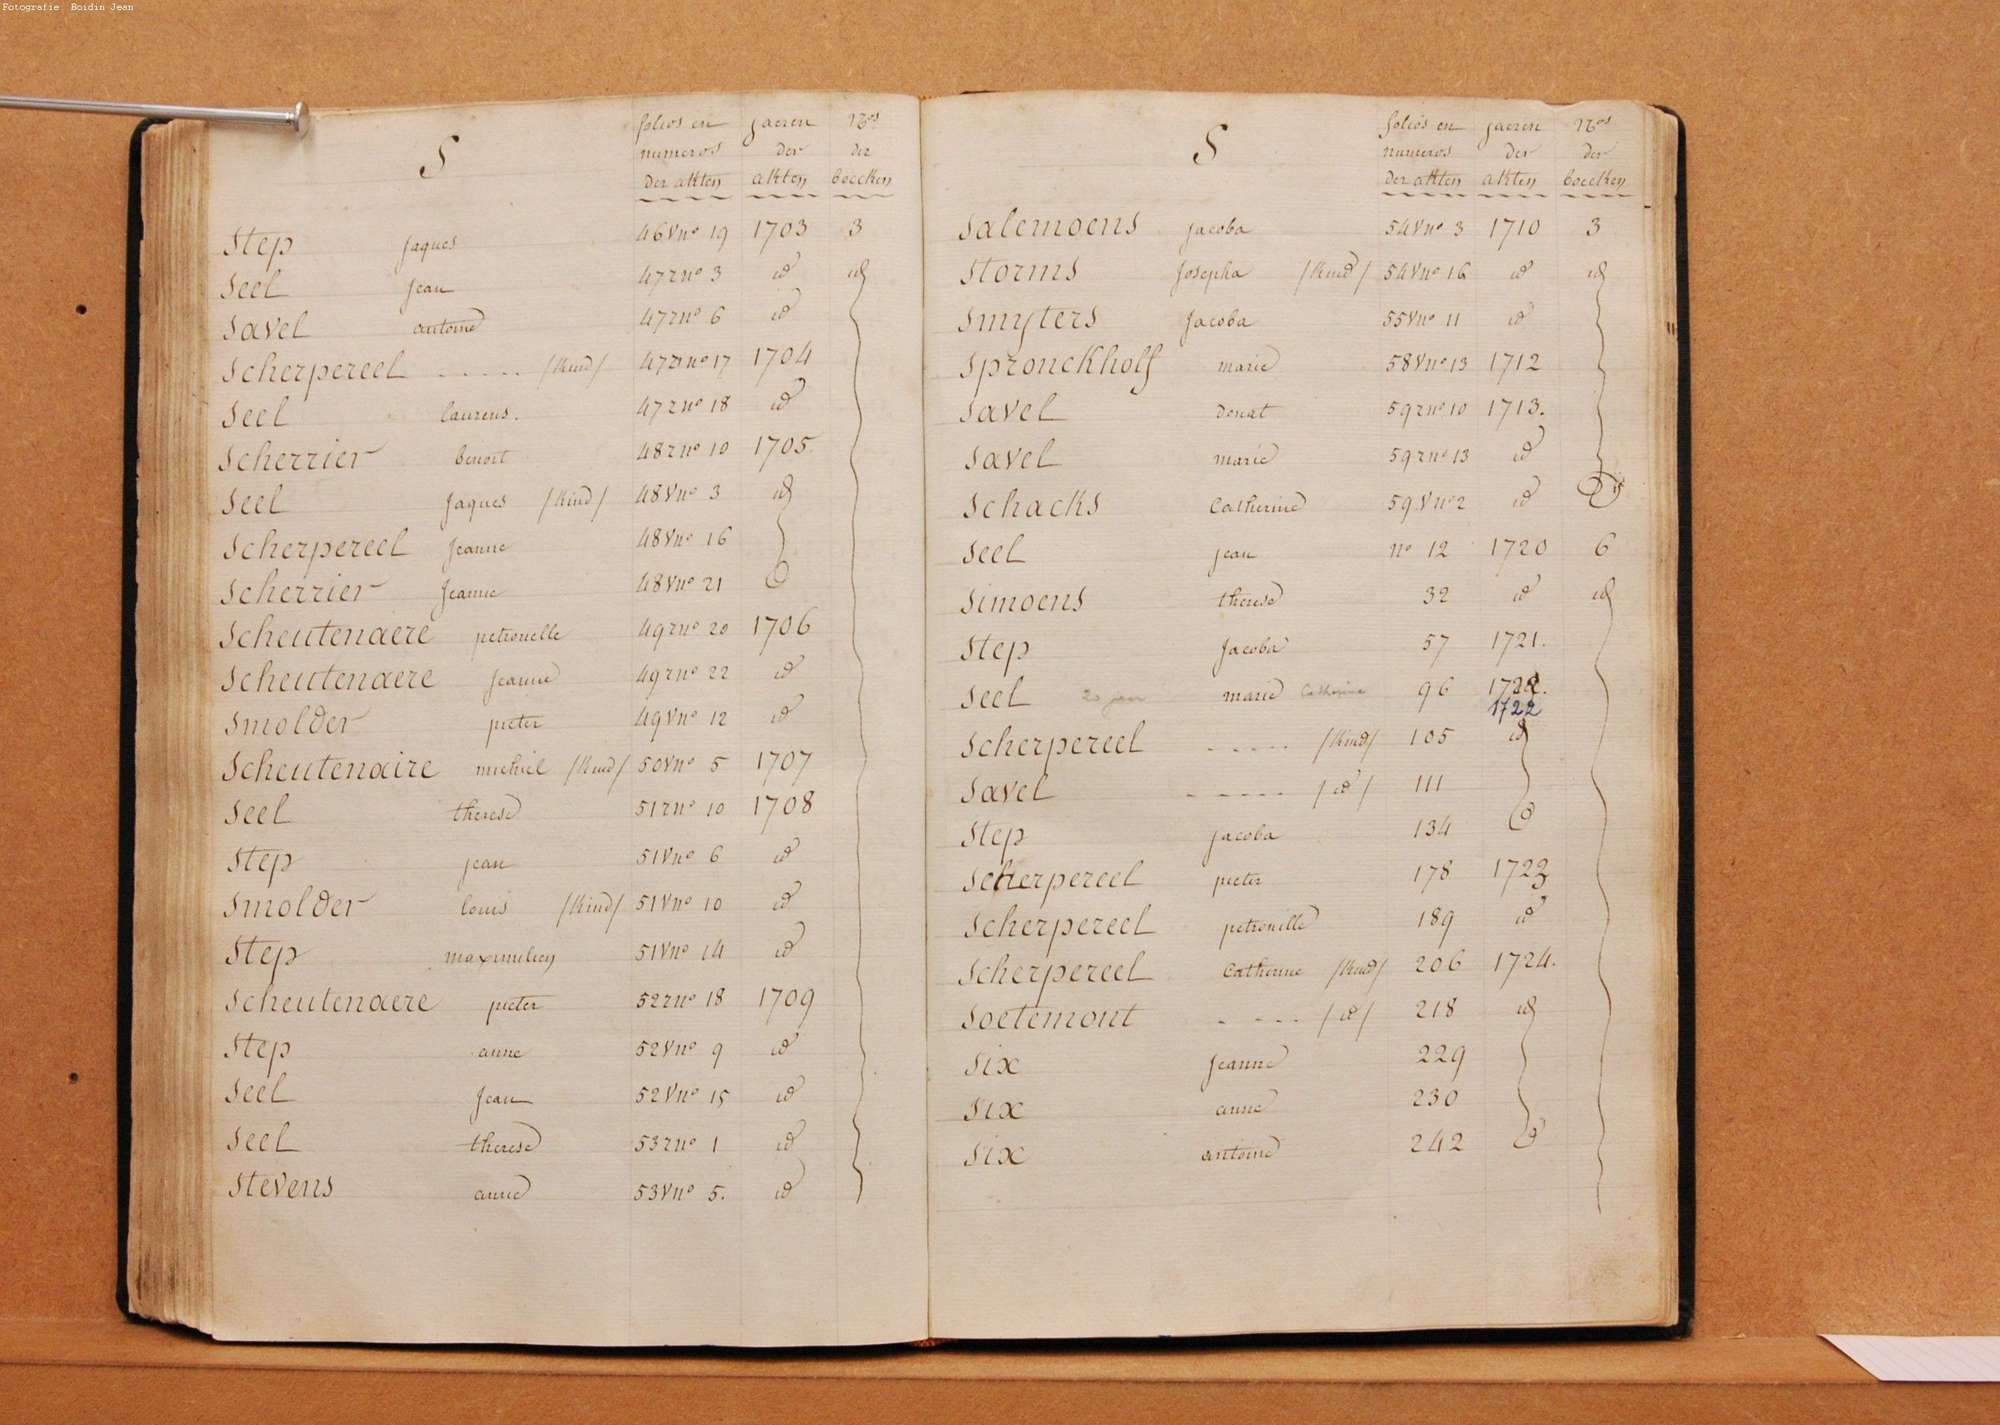 Fotografie: Boidin Jean
S folios en jaeren Nos
numeros der der
der akten akten boecken
Step Jaques 46Vno 19 1703 3
Seel Jean 47rno 3 id id
Savel antoine 47rno 6 id
Scherpereel ..... /Kind/ 47rno 17 1704
Seel laurens. 47rno 18 id
Scherrier benoit 48rno 10 1705.
Seel Jaques /Kind/ 48Vno 3 id
Scherpereel Jeanne 48Vno 16
Scherrier Jeanne 48Vno 21
Scheutenaere petronelle 49rno 20 1706
Scheutenaere Jeanne 49rno 22 id
Smolder pieter 49Vno 12 id
Scheutenaire michiel /Kind/ 50Vno 5 1707
Seel therese 51rno 10 1708
Step jean 51Vno 6 id
Smolder louis /Kind/ 51Vno 10 id
Step maximilien 51Vno 14 id
Scheutenaere pieter 52rno 18 1709
Step anne 52Vno 9 id
Seel Jean 52Vno 15 id
Seel therese 53rno 1 id
Stevens anne 53Vno 5. id
S folios en jaeren Nos
numeros der der
der akten akten boecken
Salemoens Jacoba 54Vno 3 1710 3
Storms Josepha /Kind/ 54Vno 16 id id
Smyters Jacoba 55Vno 11 id
Spronckholf marie 58Vno 13 1712
Savel Donat 59rno 10 1713.
Savel marie 59rno 13 id
Schacks Catherine 59Vno 2 id
Seel jean no 12 1720 6
Simoens therese 32 id id
Step Jacoba 57 1721.
Seel 20 jan marie Catherine 96 1722.
1722
Scherpereel ..... /Kind/ 105 id
Savel ----- /id/ 111
Step jacoba 134 id
Scherpereel pieter 178 1723
Scherpereel petronille 189 id
Scherpereel Catherine /Kind/ 206 1724.
Soetemont - --- /id/ 218 id
Six Jeanne 229
Six anne 230
Six antoine 242 id